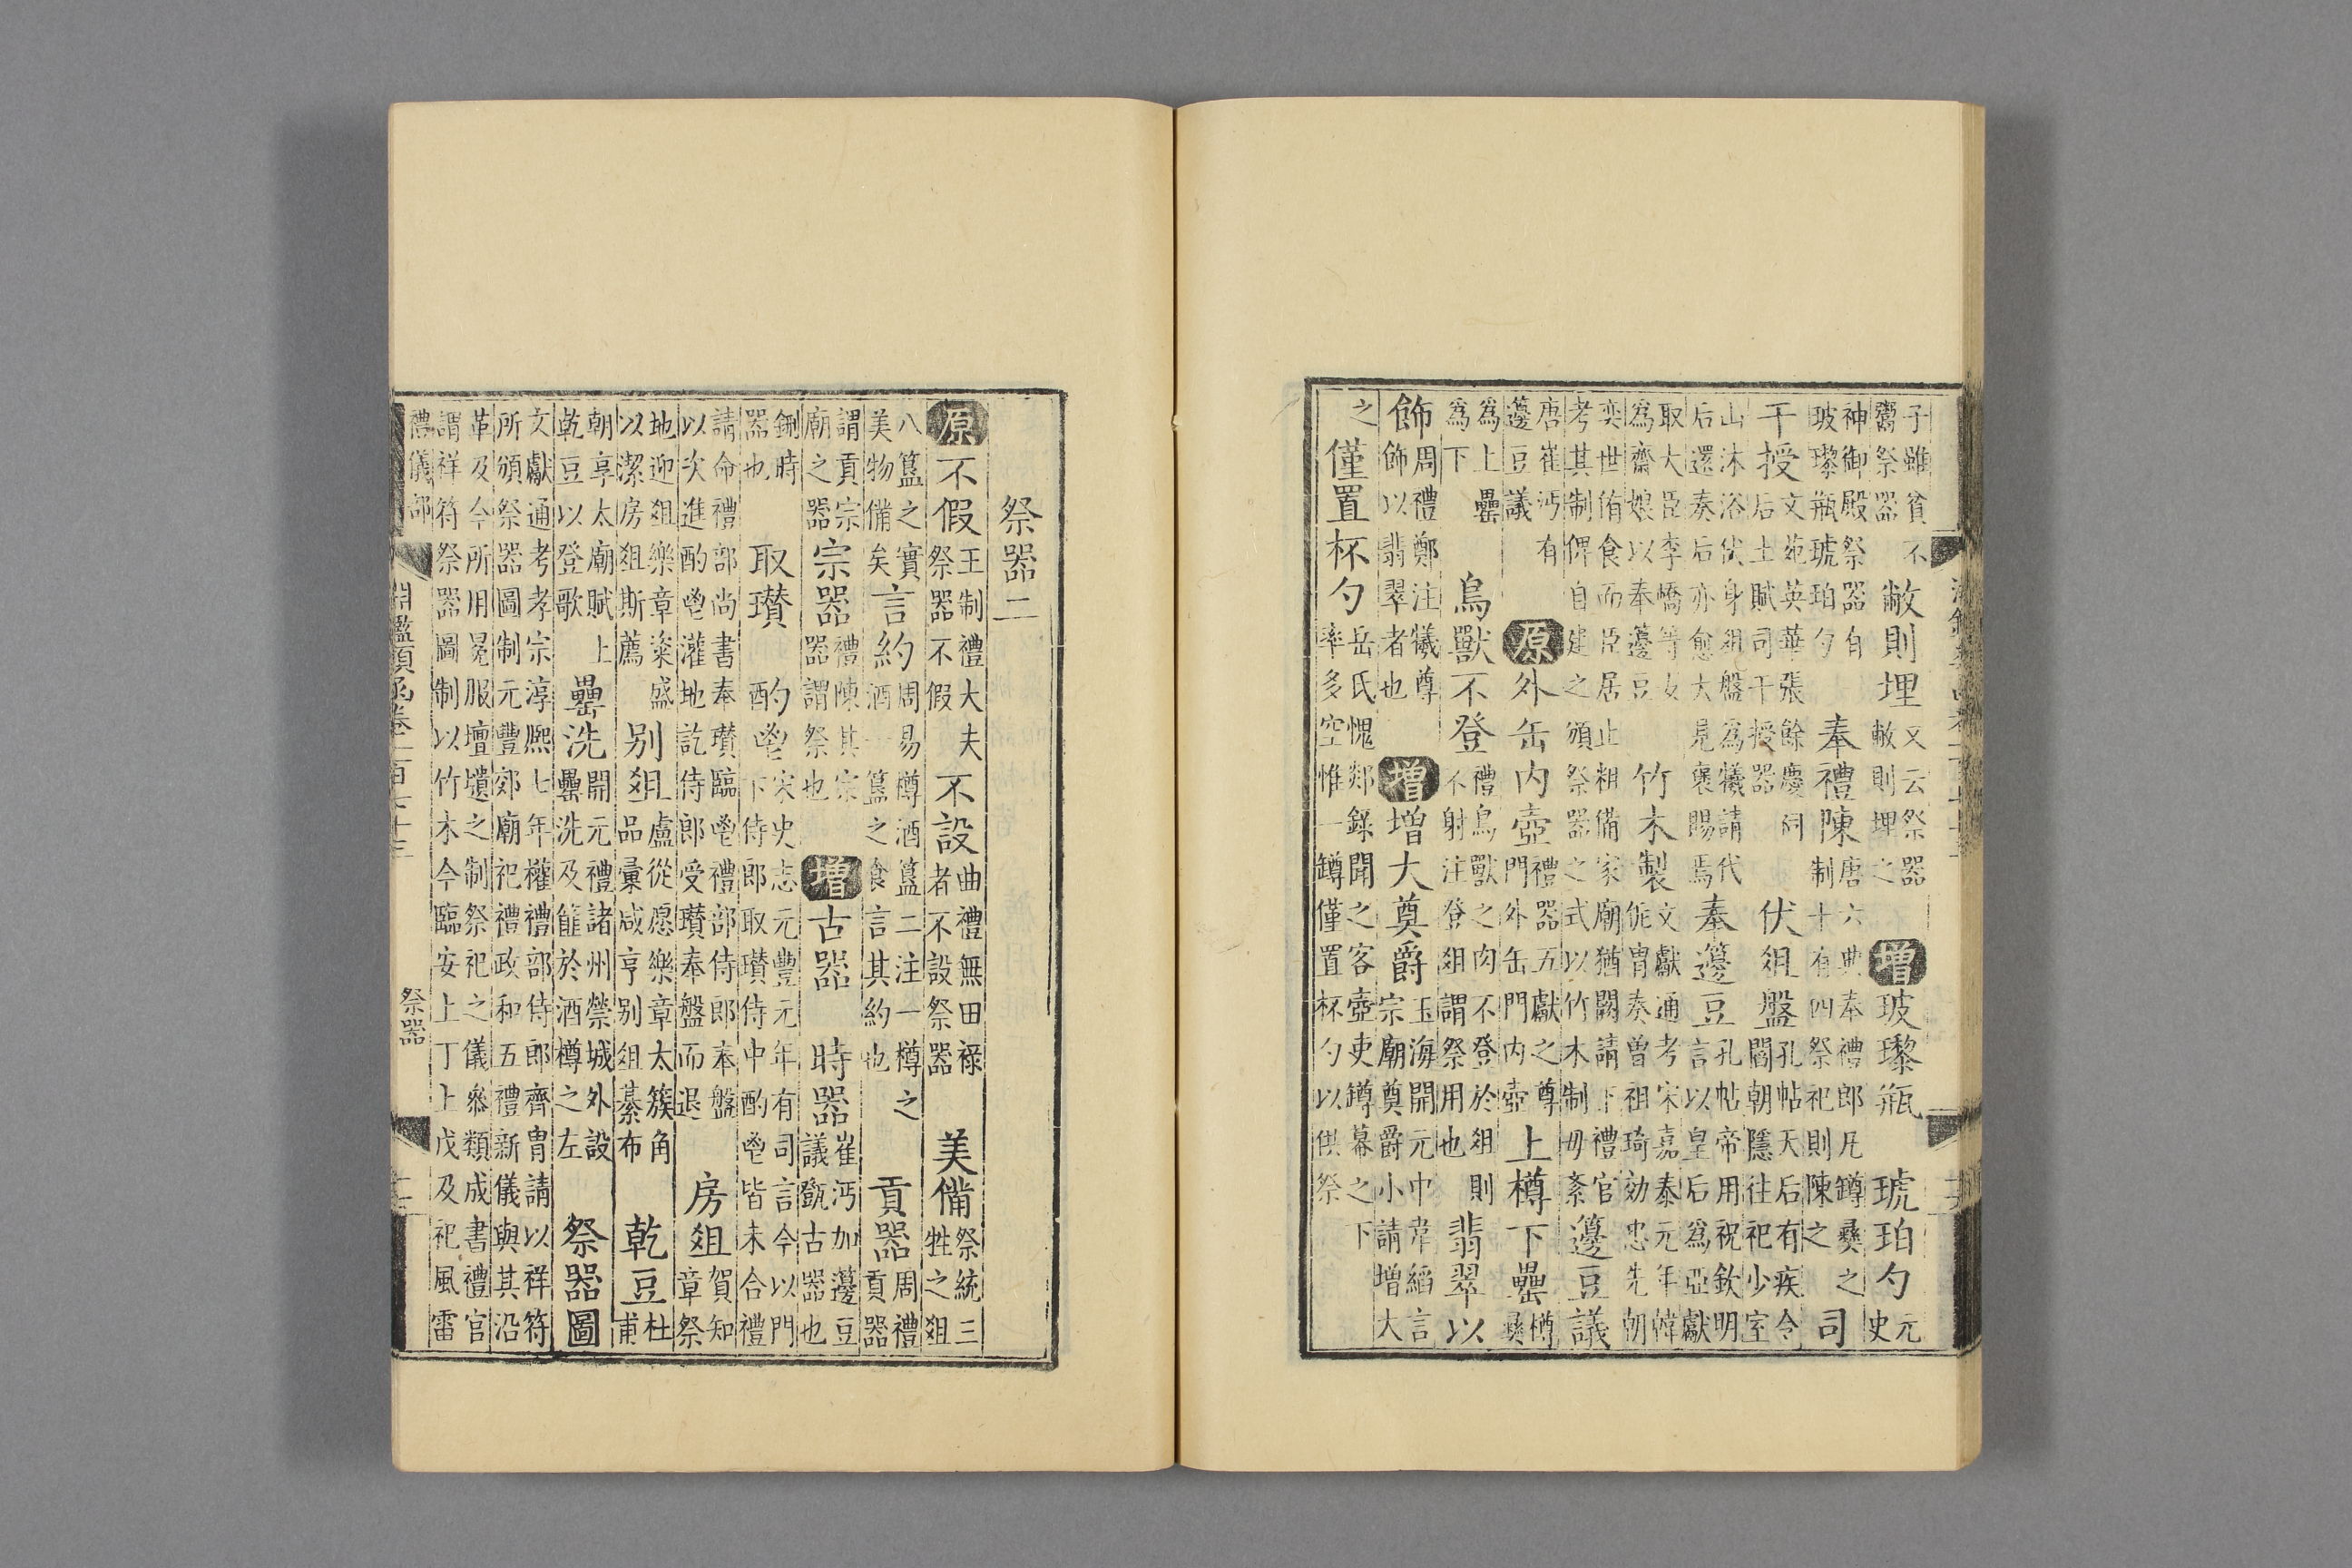 子雖貧不鬻祭器敝則埋又云祭器敝則埋之增玻瓈瓶琥珀勺元史
神御殿祭器有玻瓈瓶琥珀勺奉禮陳唐六典奉禮郎凡罇彝之制十有四祭祀則陳之司
干授文苑英華張餘慶祠后土賦司干授器伏俎盤孔帖天后有疾令閻朝隱往祀少室
山沐浴伏身俎盤為犧請代后還奏后亦愈大見褒賜焉奉籩豆孔帖帝用祝欽明言以皇后為亞獻
取大臣李嶠等女為齋娘以奉籩豆竹木製文獻通考宋嘉泰元年韓侂胄奏曾祖琦効忠先朝
奕世侑食而臣居止粗備家廟猶闕請下禮官考其制俾自建之頒祭器之式以竹木制毋紊籩豆議
唐崔沔有籩豆議原外缶內壺禮器五獻之尊門外缶門內壺上樽下罍樽彝
為上罍為下鳥獸不登禮鳥獸之肉不登於俎則不射注登俎謂祭用也翡翠以
飾周禮鄭注犧尊飾以翡翠者也增增大奠爵玉海開元中韋縚言宗廟奠爵小請增大
之僅置杯勺岳氏愧郯錄聞之客壺吏罇冪之下率多空惟一罇僅置杯勺以供祭
祭器二
原不假王制禮大夫祭器不假不設曲禮無田祿者不設祭器美備祭統三牲之俎
八簋之實美物備矣言約周易樽酒簋二注一樽之酒一簋之食言其約也貢器周禮貢器
謂貢宗廟之器宗器禮陳其宗器器謂祭也增古器時器崔沔加籩豆議甒古器也
鉶時器也取瓚酌鬯宋史志元豐元年有司言今以門下侍郎取瓚侍中酌鬯皆未合禮
請命禮部尚書奉瓚臨鬯禮部侍郎奉盤以次進酌鬯灌地訖侍郎受瓚奉盤而退房俎賀知章祭
地迎俎樂章粢盛以潔房俎斯薦別俎盧從愿樂章太簇角品彙咸亨別俎綦布乾豆杜甫
朝享太廟賦上乾豆以登歌罍洗開元禮諸州禜城外設罍洗及篚於酒樽之左祭器圖
文獻通考孝宗淳熙七年權禮部侍郎齊胄請以祥符所頒祭器圖制元豐郊廟祀禮政和五禮新儀與其沿
革及今所用冕服壇壝之制祭祀之儀叅類成書禮官謂祥符祭器圖制以竹木今臨安上丁上戊及祀風雷
禮儀部
淵鑑類函卷一百七十三
祭器